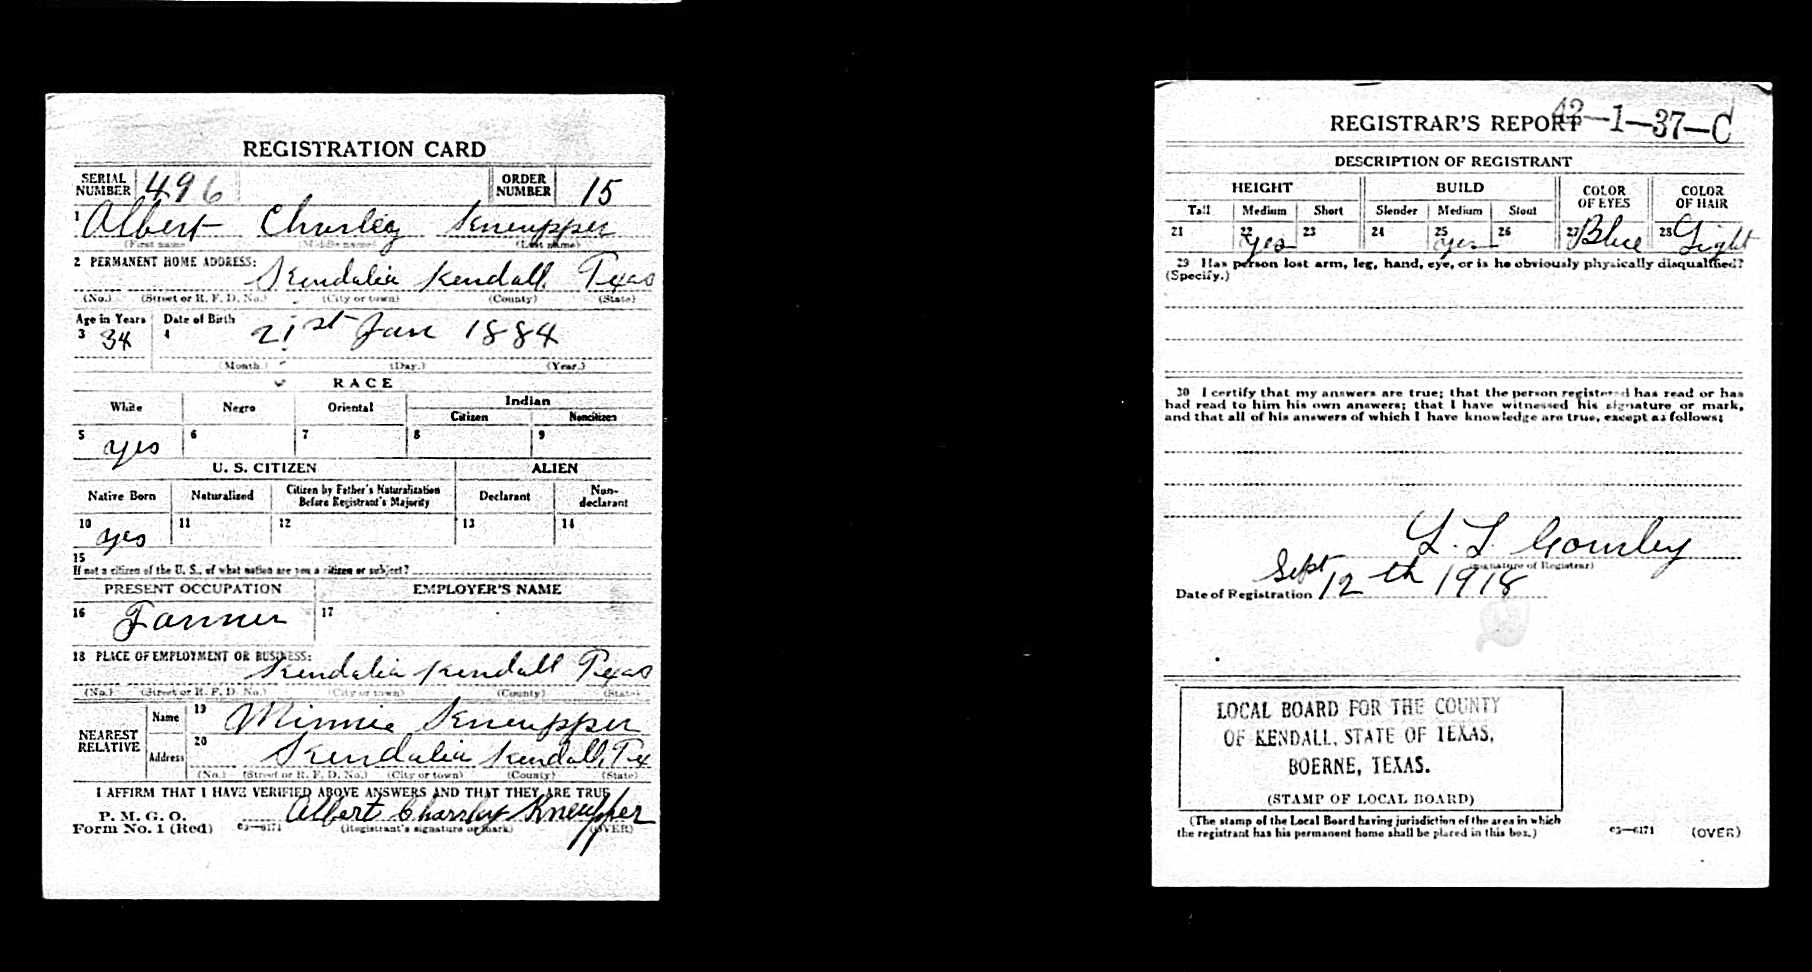 REGISTRATION CARD
SERIAL NUMBER 496 ORDER NUMBER 15
1 Albert Charley Kneupper
(First name) (Middle name) (Last name)
2 PERMANENT HOME ADDRESS:
Kendalia Kendall Texas
(No.) (Street or R. F. D. No.) (City or town) (County) (State)
Age in Years Date of Birth
3 34 4 21st Jan 1884
(Month.) (Day.) (Year.)
RACE
White Negro Oriental Indian
Citizen Noncitizen
5 yes 6 7 8 9
U. S. CITIZEN ALIEN
Native Born Naturalized Citizen by Father's Naturalization Before Registrant's Majority Declarant Non-declarant
10 yes 11 12 13 14
15
If not a citizen of the U. S., of what nation are you a citizen or subject?
PRESENT OCCUPATION EMPLOYER'S NAME
16 Farmer 17
18 PLACE OF EMPLOYMENT OR BUSINESS:
Kendalia Kendall Texas
(No.) (Street or R. F. D. No.) (City or town) (County) (State)
NEAREST RELATIVE Name 19 Minnie Kneupper
Address 20 Kendalia Kendall, Tex
(No.) (Street or R. F. D. No.) (City or town) (County) (State)
I AFFIRM THAT I HAVE VERIFIED ABOVE ANSWERS AND THAT THEY ARE TRUE
P. M. G. O.
Form No. 1 (Red) 03—6171 Albert Charley Kneupper
(Registrant's signature or mark) (OVER)
REGISTRAR'S REPORT 42—1—37—C
DESCRIPTION OF REGISTRANT
HEIGHT BUILD COLOR OF EYES COLOR OF HAIR
Tall Medium Short Slender Medium Stout
21 22 yes 23 24 25 yes 26 27 Blue 28 Light
29 Has person lost arm, leg, hand, eye, or is he obviously physically disqualified?
(Specify.)
30 I certify that my answers are true; that the person registered has read or has
had read to him his own answers; that I have witnessed his signature or mark,
and that all of his answers of which I have knowledge are true, except as follows:
L. L. Gourley
(Signature of Registrar)
Date of Registration Sept 12th 1918
LOCAL BOARD FOR THE COUNTY
OF KENDALL, STATE OF TEXAS,
BOERNE, TEXAS.
(STAMP OF LOCAL BOARD)
(The stamp of the Local Board having jurisdiction of the area in which
the registrant has his permanent home shall be placed in this box.)
03—6171 (OVER)